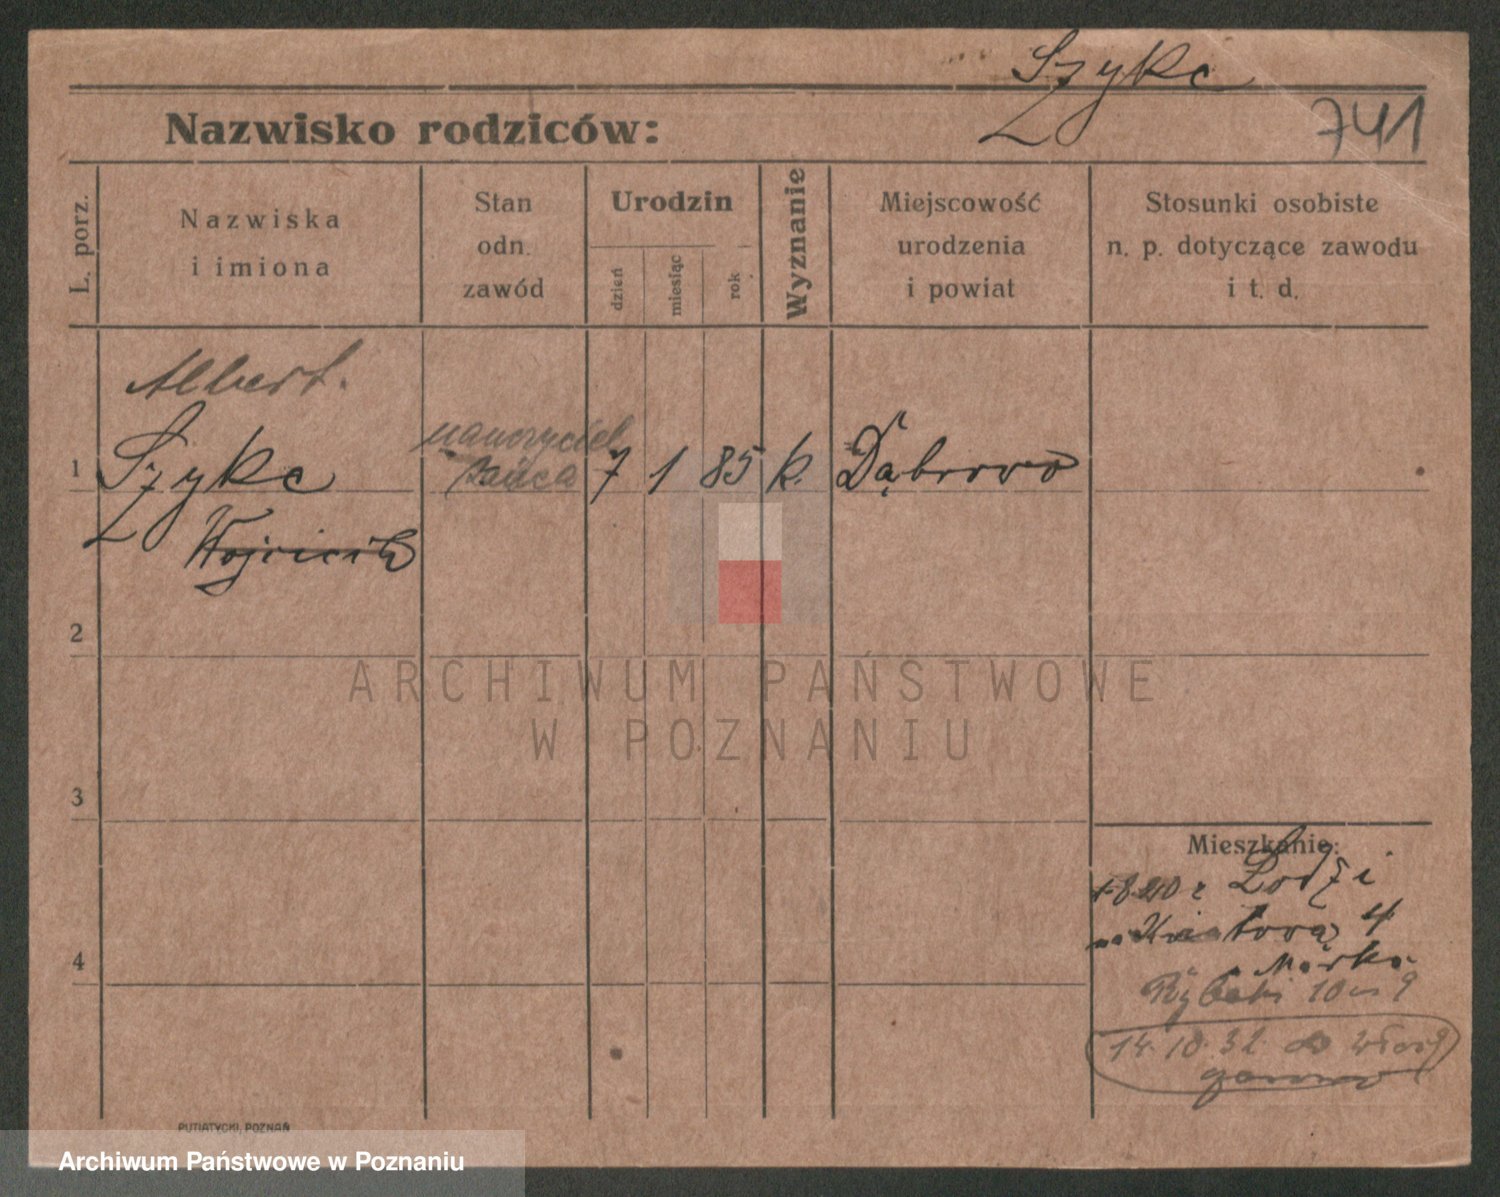 Szykc
Nazwisko rodziców:
741
L. porz.
Nazwiska
i imiona
Stan
odn.
zawód
Urodzin
dzień
miesiąc
rok
Wyznanie
Miejscowość
urodzenia
i powiat
Stosunki osobiste
n. p. dotyczące zawodu
i t. d.
Albert.
1 Szykc nauczyciel tańca 7 1 85 k. Dąbrowo
Wojciech
2
ARCHIWUM PAŃSTWOWE
W POZNANIU
3
Mieszkanie:
Łodzi
4
4
Rybaki 10 m 9
14. 10. 32 do
PUTIATYCKI, POZNAŃ
Archiwum Państwowe w Poznaniu